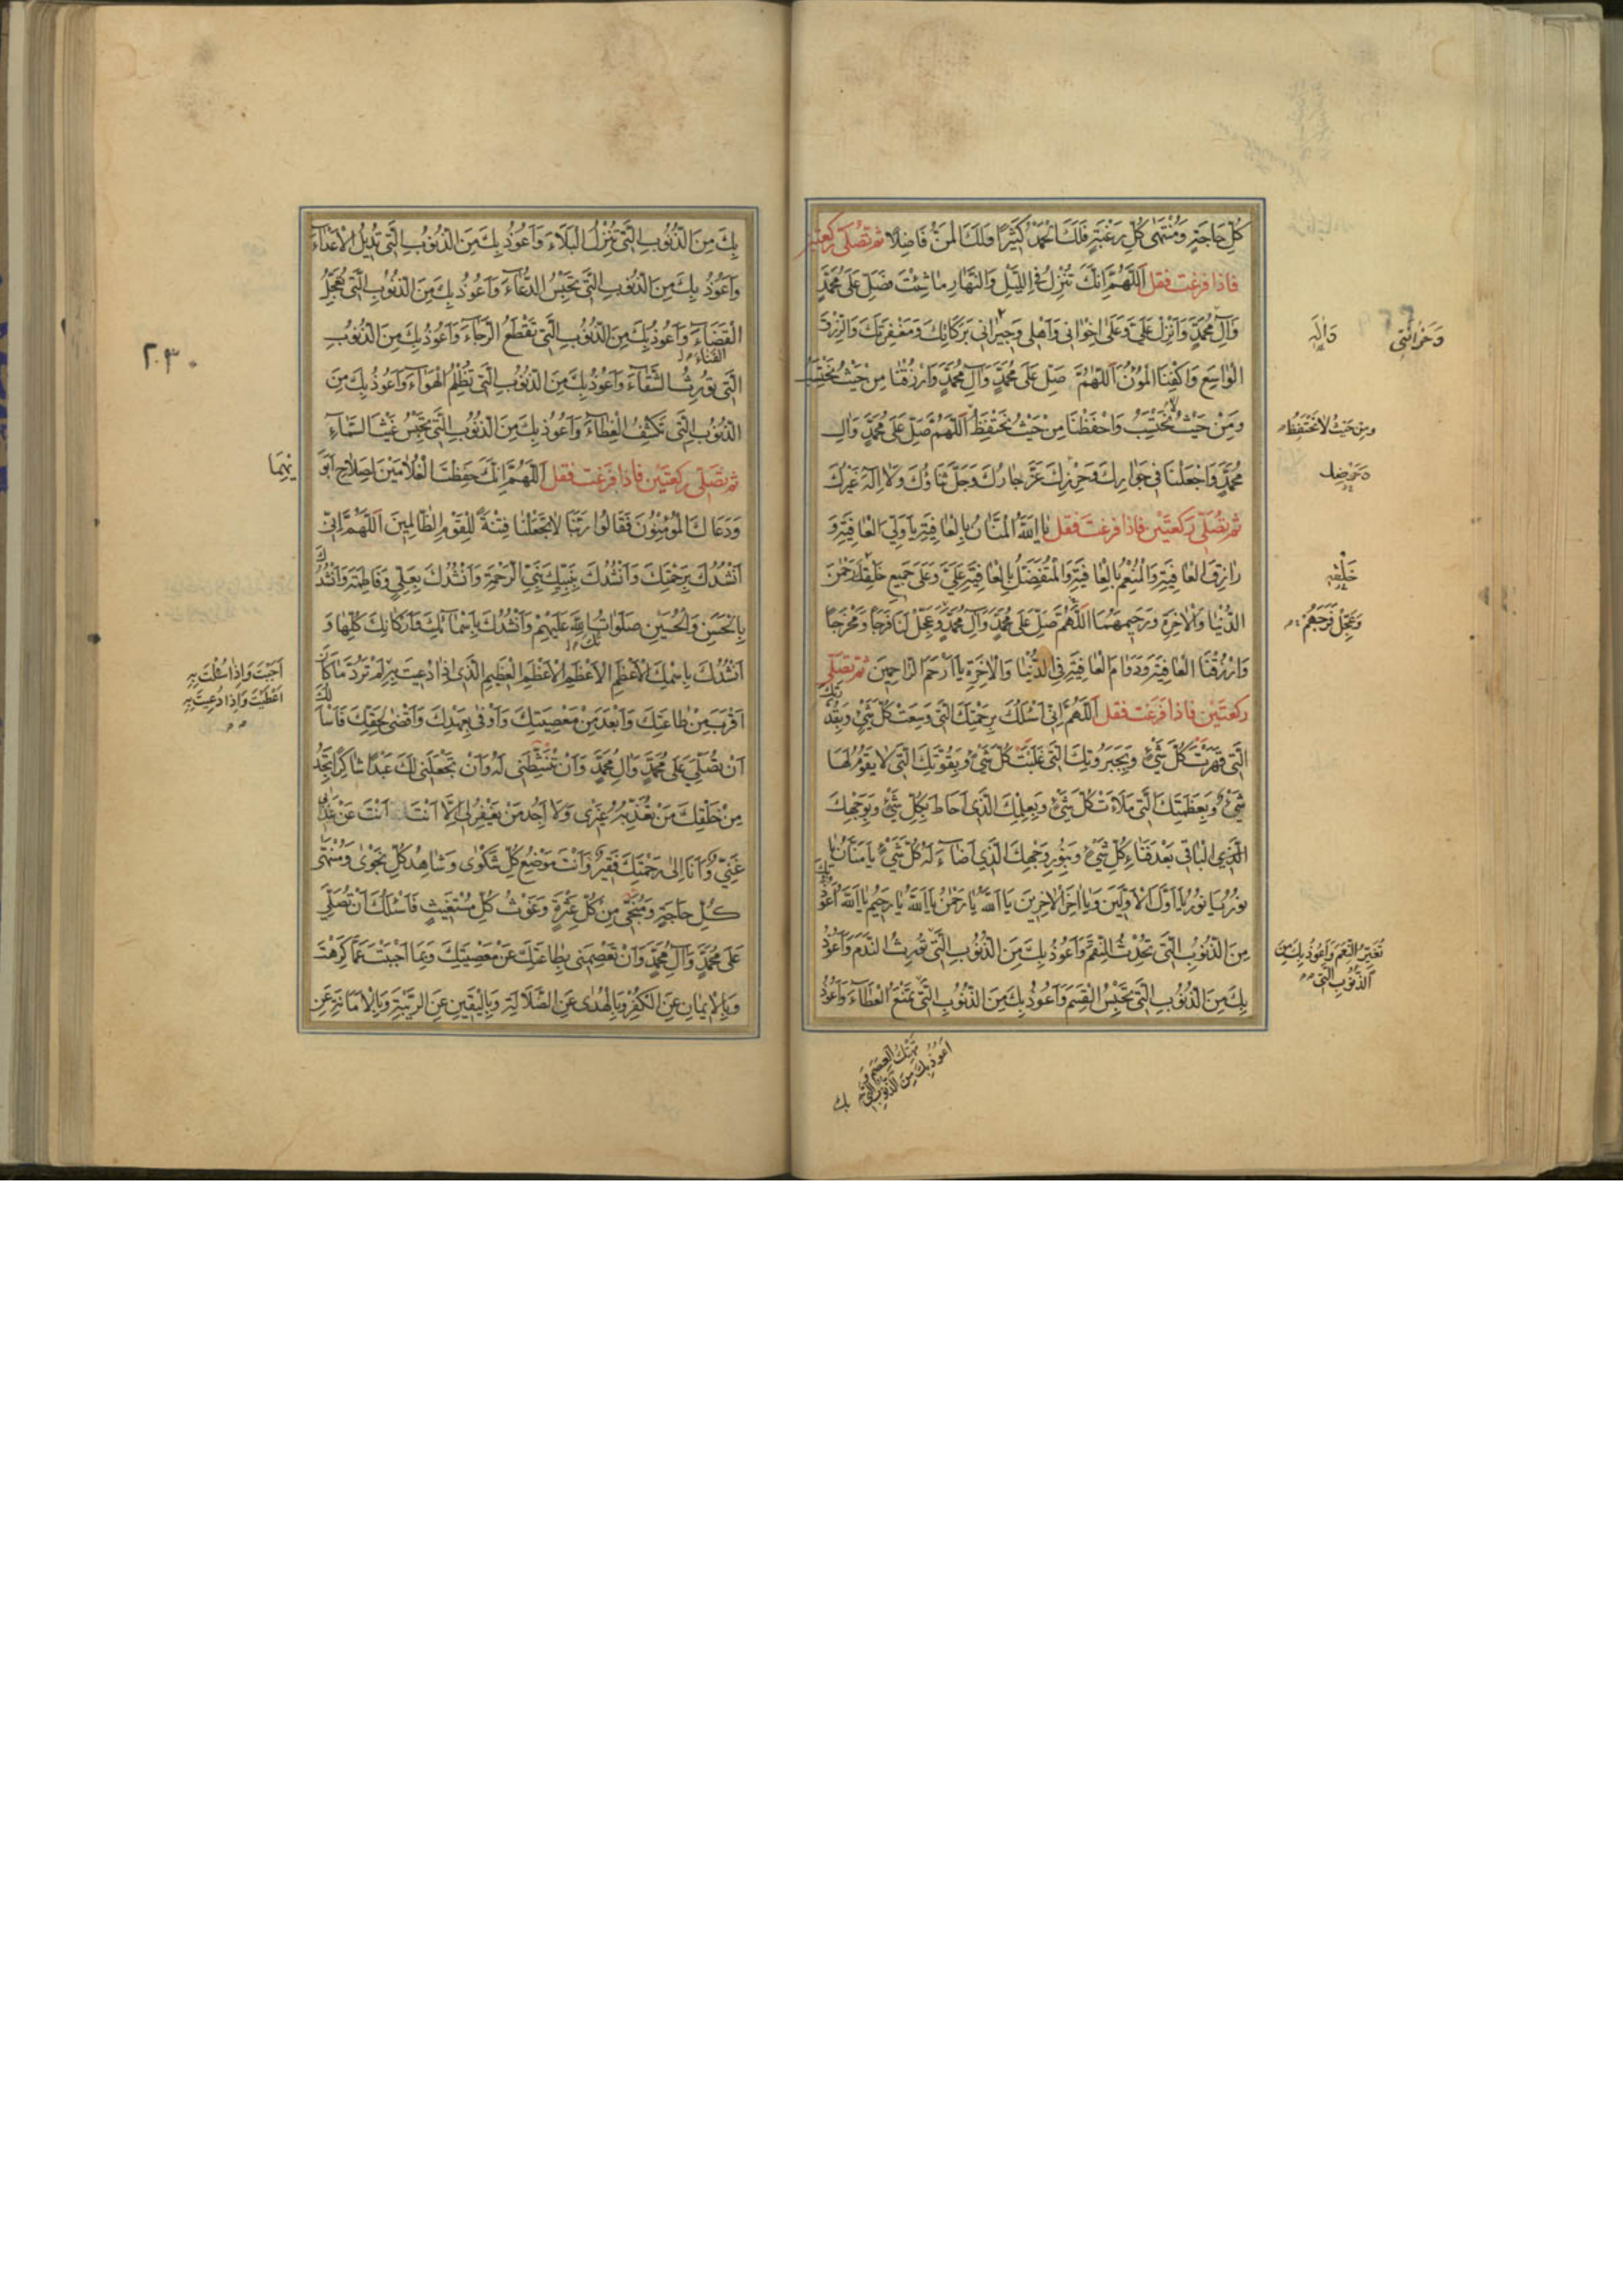 كُلِّ حَاجَةٍ وَمُنْتَهٰى كُلِّ رَغْبَةٍ فَلَكَ الْحَمْدُ كَثِيرًا وَلَكَ الْمَنُّ فَاضِلًا ثم تصلى ركعتين
فاذا فرغت فقل اَللّٰهُمَّ اِنَّكَ تُنْزِلُ فِى اللَّيْلِ وَالنَّهٰارِ مٰا شِئْتَ فَصَلِّ عَلٰى مُحَمَّدٍ
وَآلِ مُحَمَّدٍ وَاَنْزِلْ عَلَىَّ وَعَلٰى اِخْوٰانى وَاَهْلى وَجيرٰانى بَرَكٰاتِكَ وَمَغْفِرَتَكَ وَالرِّزْقَ
الْوٰاسِعَ وَاكْفِنَا الْمُؤَنَ اَللّٰهُمَّ صَلِّ عَلٰى مُحَمَّدٍ وَآلِ مُحَمَّدٍ وَارْزُقْنٰا مِنْ حَيْثُ نَحْتَسِبُ
وَمِنْ حَيْثُ لا نَحْتَسِبُ وَاحْفَظْنَا مِنْ حَيْثُ نَحْتَفِظُ اَللّٰهُمَّ صَلِّ عَلٰى مُحَمَّدٍ وَآلِ
مُحَمَّدٍ وَاجْعَلْنَا فى جِوٰارِكَ وَحِرْزِكَ عَزَّ جٰارُكَ وَجَلَّ ثَنٰاؤُكَ وَلٰا اِلٰهَ غَيْرُكَ
ثم تصلى ركعتين فاذا فرغت فقل يٰا اَللّٰهُ الْمَنّٰانُ بِالْعٰافِيَةِ يٰا وَلِىَّ الْعٰافِيَةِ وَ
رٰازِقَ الْعٰافِيَةِ وَالْمُنْعِمُ بِالْعٰافِيَةِ وَالْمُتَفَضِّلُ بِالْعٰافِيَةِ عَلَىَّ وَعَلٰى جَميعِ خَلْقِكَ رَحْمٰنَ
الدُّنْيٰا وَالْاٰخِرَةِ وَرَحيمَهُمَا اَللّٰهُمَّ صَلِّ عَلٰى مُحَمَّدٍ وَآلِ مُحَمَّدٍ وَعَجِّلْ لَنٰا فَرَجًا وَمَخْرَجًا
وَارْزُقْنَا الْعٰافِيَةَ وَدَوٰامَ الْعٰافِيَةِ فِى الدُّنْيٰا وَالْاٰخِرَةِ يٰا اَرْحَمَ الرّٰاحِمينَ ثم تصلى
ركعتين فاذا فرغت فقل اَللّٰهُمَّ اِنّى اَسْئَلُكَ بِرَحْمَتِكَ الَّتى وَسِعَتْ كُلَّ شَىْءٍ وَبِقُدْرَتِكَ
الَّتى قَهَرَتْ كُلَّ شَىْءٍ وَبِجَبَرُوتِكَ الَّتى غَلَبَتْ كُلَّ شَىْءٍ وَبِقُوَّتِكَ الَّتى لٰا يَقُومُ لَهٰا
شَىْءٌ وَبِعَظَمَتِكَ الَّتى مَلَأَتْ كُلَّ شَىْءٍ وَبِعِلْمِكَ الَّذى اَحٰاطَ بِكُلِّ شَىْءٍ وَبِوَجْهِكَ
الَّذى الْبٰاقى بَعْدَ فَنٰاءِ كُلِّ شَىْءٍ وَبِنُورِ وَجْهِكَ الَّذى اَضٰاءَ لَهُ كُلُّ شَىْءٍ يٰا مَنّٰانُ يٰا
نُورُ يٰا نُورُ يٰا اَوَّلَ الْاَوَّلينَ وَيٰا اٰخِرَ الْاٰخِرينَ يٰا اَللّٰهُ يٰا رَحْمٰنُ يٰا اَللّٰهُ يٰا رَحيمُ يٰا اَللّٰهُ اَعُوذُ بِكَ
مِنَ الذُّنُوبِ الَّتى تُحْدِثُ النِّقَمَ وَاَعُوذُ بِكَ مِنَ الذُّنُوبِ الَّتى تُورِثُ النَّدَمَ وَاَعُوذُ
بِكَ مِنَ الذُّنُوبِ الَّتى تَحْبِسُ الْقِسَمَ وَاَعُوذُ بِكَ مِنَ الذُّنُوبِ الَّتى تَمْنَعُ الْعَطٰاءَ وَاَعُوذُ
وَآلِهِ
وَمِنْ حَيْثُ لٰا نَحْتَفِظُ
خَلْقِهِ
وَعَجِّلْ فَرَجَهُمْ
تُغَيِّرُ النِّعَمَ وَاَعُوذُ بِكَ مِنَ
الذُّنُوبِ الَّتى
تَهْتِكُ الْعِصَمَ
اَعُوذُ بِكَ مِنَ الذُّنُوبِ الَّتى
بك
بِكَ مِنَ الذُّنُوبِ الَّتى تُنْزِلُ الْبَلٰاءَ وَاَعُوذُ بِكَ مِنَ الذُّنُوبِ الَّتى تُديلُ الْاَعْدٰاءَ
وَاَعُوذُ بِكَ مِنَ الذُّنُوبِ الَّتى تَحْبِسُ الدُّعٰاءَ وَاَعُوذُ بِكَ مِنَ الذُّنُوبِ الَّتى تُعَجِّلُ
الْقَضٰاءَ وَاَعُوذُ بِكَ مِنَ الذُّنُوبِ الَّتى تَقْطَعُ الرَّجٰاءَ وَاَعُوذُ بِكَ مِنَ الذُّنُوبِ
الفناء
الَّتى تُورِثُ الشَّقٰاءَ وَاَعُوذُ بِكَ مِنَ الذُّنُوبِ الَّتى تُظْلِمُ الْهَوٰاءَ وَاَعُوذُ بِكَ مِنَ
الذُّنُوبِ الَّتى تَكْشِفُ الْغِطٰاءَ وَاَعُوذُ بِكَ مِنَ الذُّنُوبِ الَّتى تَحْبِسُ غَيْثَ السَّمٰاءِ
ثم تصلى ركعتين فاذا فرغت فقل اَللّٰهُمَّ اِنَّكَ حَفِظْتَ الْغُلٰامَيْنِ لِصَلٰاحِ اَبَوَيْهِمَا
وَدَعٰاكَ الْمُؤْمِنُونَ فَقٰالُوا رَبَّنٰا لٰا تَجْعَلْنٰا فِتْنَةً لِلْقَوْمِ الظّٰالِمينَ اَللّٰهُمَّ اِنّى
اَنْشُدُكَ بِرَحْمَتِكَ وَاَنْشُدُكَ بِنَبِيِّكَ نَبِىِّ الرَّحْمَةِ وَاَنْشُدُكَ بِعَلِىٍّ وَفٰاطِمَةَ وَاَنْشُدُكَ
بِالْحَسَنِ وَالْحُسَيْنِ صَلَوٰاتُ اللّٰهِ عَلَيْهِمْ وَاَنْشُدُكَ بِاَسْمٰائِكَ وَاَرْكٰانِكَ كُلِّهٰا وَ
اَنْشُدُكَ بِاسْمِكَ الْاَعْظَمِ الْاَعْظَمِ الْاَعْظَمِ الْعَظيمِ الَّذى اِذٰا دُعيتَ بِهِ لَمْ تَرُدَّ مٰا كٰانَ
اَقْرَبَ مِنْ طٰاعَتِكَ وَاَبْعَدَ مِنْ مَعْصِيَتِكَ وَاَوْفٰى بِعَهْدِكَ وَاَقْضٰى لِحَقِّكَ فَاَسْاَلُكَ
اَنْ تُصَلِّىَ عَلٰى مُحَمَّدٍ وَآلِ مُحَمَّدٍ وَاَنْ تُنَشِّطَنى لَهُ وَاَنْ تَجْعَلَنى لَكَ عَبْدًا شٰاكِرًا تَجِدُ
مِنْ خَلْقِكَ مَنْ تُعَذِّبُهُ غَيْرى وَلٰا اَجِدُ مَنْ يَغْفِرُ لى اِلّٰا اَنْتَ اَنْتَ عَنْ عَذٰابى
غَنِىٌّ وَاَنَا اِلٰى رَحْمَتِكَ فَقيرٌ وَاَنْتَ مَوْضِعُ كُلِّ شَكْوٰى وَشٰاهِدُ كُلِّ نَجْوٰى وَمُنْتَهٰى
كُلِّ حٰاجَةٍ وَمُنْجى مِنْ كُلِّ عَثْرَةٍ وَغَوْثُ كُلِّ مُسْتَغيثٍ فَاَسْئَلُكَ اَنْ تُصَلِّىَ
عَلٰى مُحَمَّدٍ وَآلِ مُحَمَّدٍ وَاَنْ تَعْصِمَنى بِطٰاعَتِكَ عَنْ مَعْصِيَتِكَ وَبِمٰا اَحْبَبْتَ عَمّٰا كَرِهْتَ
وَبِالْاِيمٰانِ عَنِ الْكُفْرِ وَبِالْهُدٰى عَنِ الضَّلٰالَةِ وَبِالْيَقينِ عَنِ الرِّيبَةِ وَبِالْاَمٰانَةِ عَنِ
اَجَبْتَ وَاِذٰا سُئِلْتَ بِهِ
اَعْطَيْتَ وَاِذٰا دُعيتَ بِهِ
٢٠٣